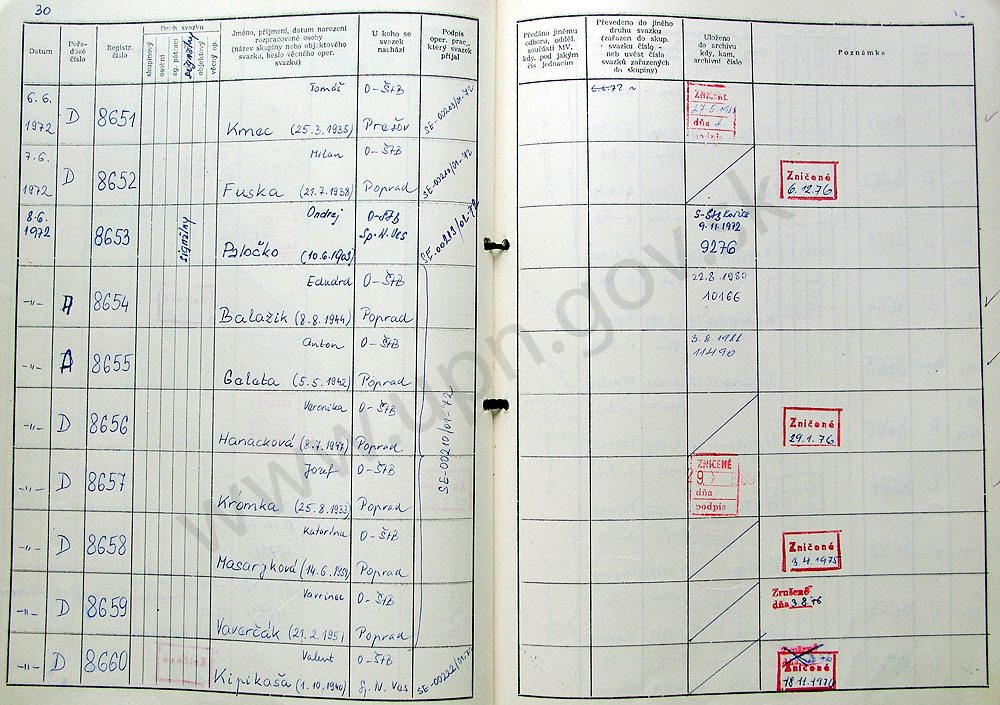 30
Datum
Pořa-
dové
číslo
Registr.
číslo
Druh svazku
skupinový
osobní
ag. pátrací
signálny
objektový
věcný op.
Jméno, příjmení, datum narození
rozpracované osoby
(název skupiny nebo objektového
svazku, heslo věcného oper.
svazku)
U koho se
svazek
nachází
Podpis
oper. prac.,
který svazek
přijal
Předáno jinému
odboru, odděl.
součásti MV,
kdy, pod jakým
čís jednacím
Převedeno do jiného
druhu svazku
(zařazen do skup.
svazku číslo, -
neb uvést čísla
svazků zařazených
do skupiny)
Uloženo
do archivu
kdy, kam,
archivní číslo
Poznámka
6.6.
1972
D
8651
Tomáš
Kmec (25.3.1935)
O-ŠtB
Prešov
SE-00209/01-72
ZNIČENÉ
dňa
podpis
7.6.
1972
D
8652
Milan
Fuska (21.7.1938)
O-ŠtB
Poprad
SE-00210/01-72
Zničené
6.12.76
8.6.
1972
8653
signálny
Ondrej
Paločko (10.6.1903)
O-ŠtB
Sp.N.Ves
S-ŠtB Košice
9.11.1972
9276
-"-
A
8654
Eduard
Balažik (8.8.1944)
O-ŠtB
Poprad
22.8.1980
10166
-"-
A
8655
Anton
Galata (5.5.1942)
O-ŠtB
Poprad
3.8.1986
11490
-"-
D
8656
Veronika
Hanacková (8.7.1947)
O-ŠtB
Poprad
SE-00210/01-72
Zničené
29.1.76
-"-
D
8657
Jozef
Kromka (25.8.1933)
O-ŠtB
Poprad
ZNIČENÉ
dňa
podpis
-"-
D
8658
Katarína
Masaryková (14.6.1951)
O-ŠtB
Poprad
Zničené
3.4.1975
-"-
D
8659
Vavrinec
Vaverčák (21.2.1951
O-ŠtB
Poprad
Zrušené
dňa 3.8.76
-"-
D
8660
Valent
Kipikaša (1.10.1940)
O-ŠtB
Sp. N. Ves
SE-00222/01-72
Zničené
18.11.1976
www.upn.gov.sk